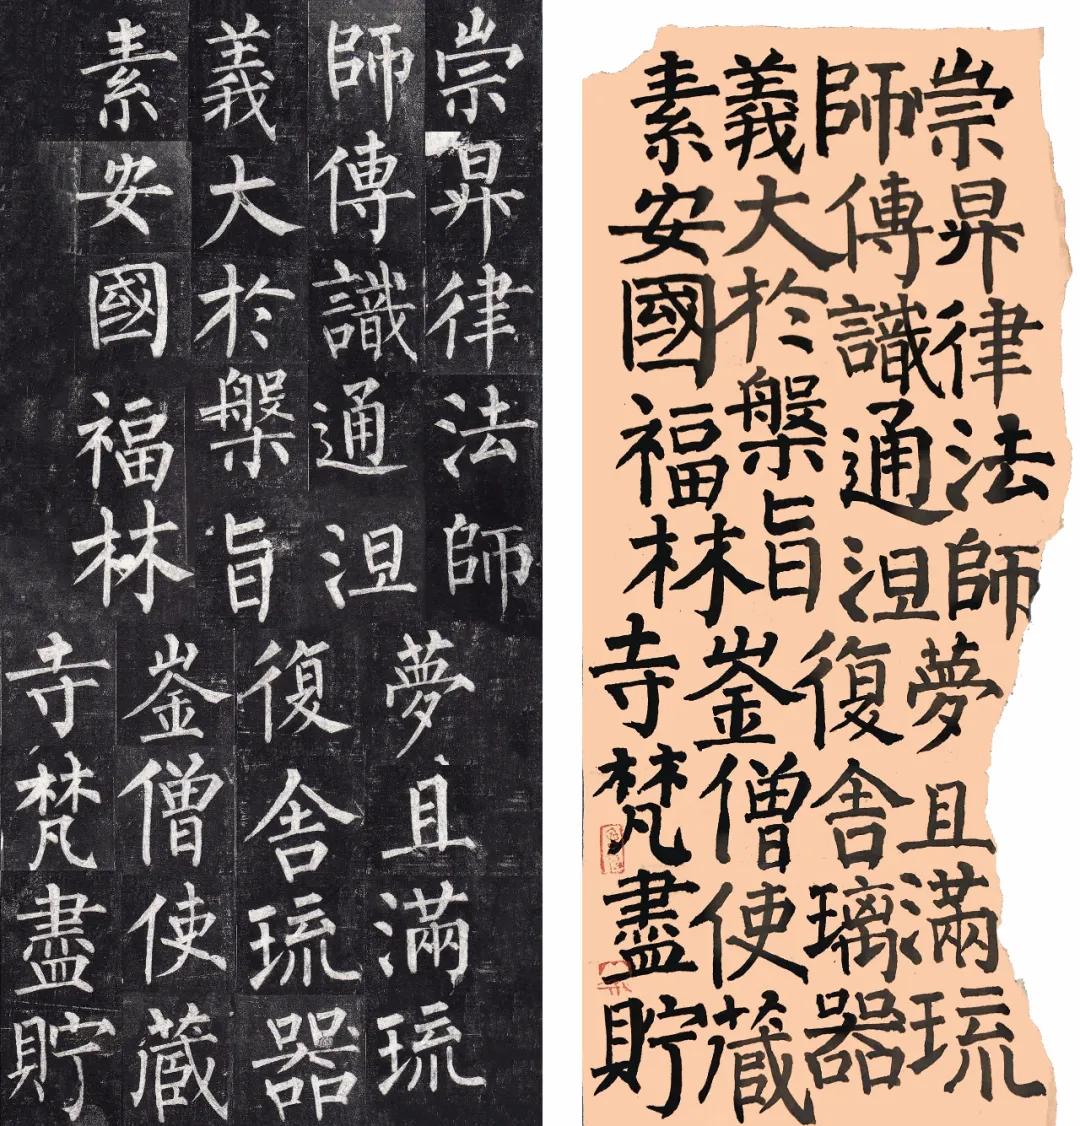 崇昇律法師夢且滿琉
師傳識通涅復舍琉器
義大於槃旨崟僧使藏
素安國福林寺梵盡貯
崇昇律法師夢且滿琉
師傳識通涅復舍璃器
義大於槃旨崟僧使藏
素安國福林寺梵盡貯